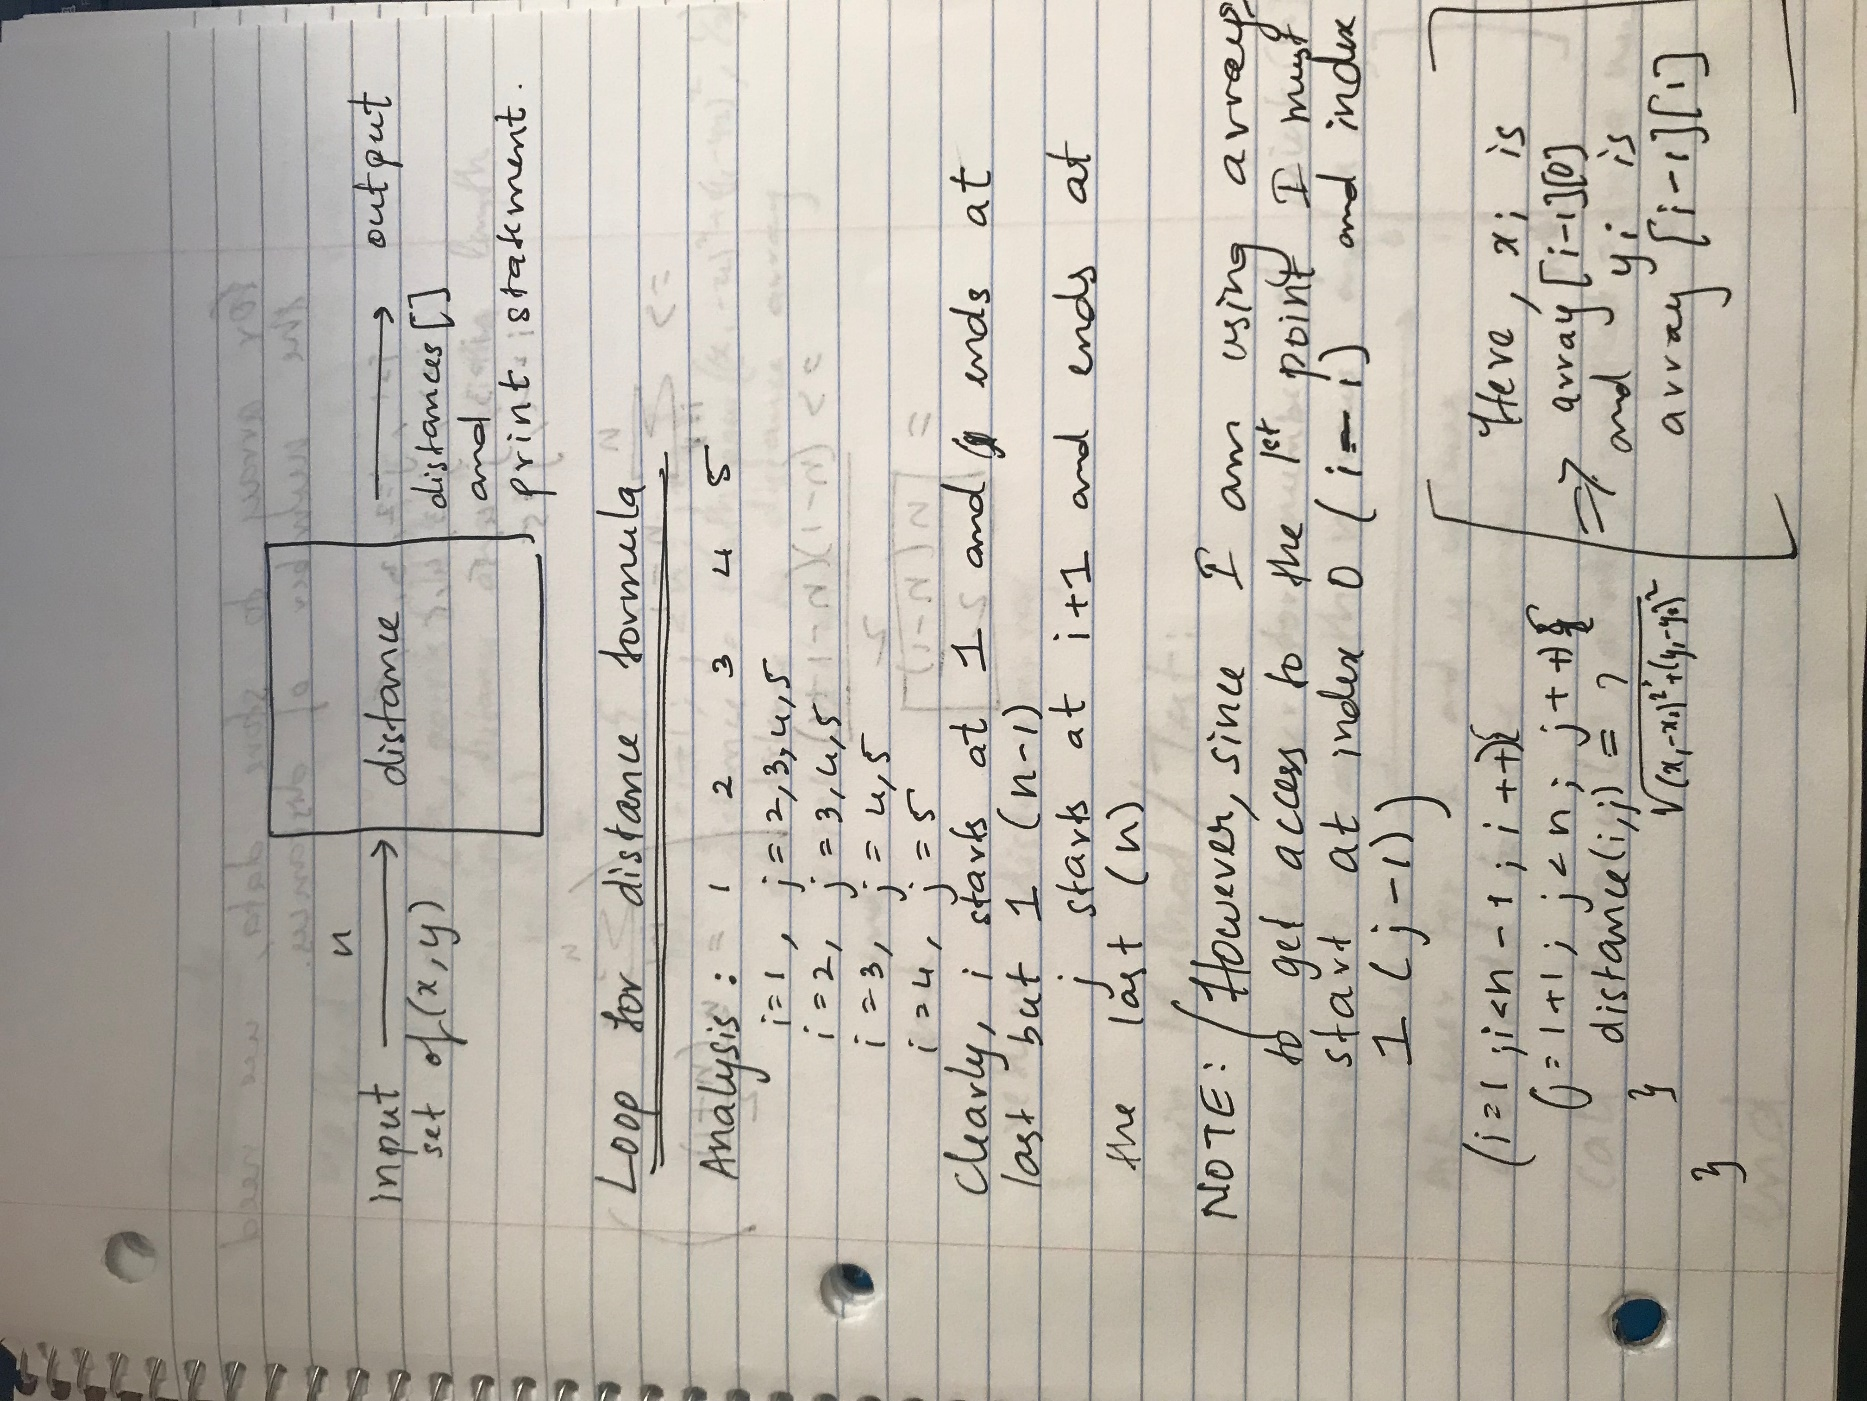 n
input → distance → output
set of (x,y)
distances[]
and
print statement.
Loop for distance formula
Analysis: 1 2 3 4 5
i=1, j=2,3,4,5
i=2, j=3,4,5
i=3, j=4,5
i=4, j=5
Clearly, i starts at 1 and ends at
last but 1 (n-1)
j starts at i+1 and ends at
the last (n)
NOTE: (However, since I am using arrays
to get access to the 1st point I must
start at index 0 (i-1) and index
1 (j-1))
(i=1; i<n-1; i++){
(j=i+1; j<n; j++){
distance(i,j) = ?
√(xi-xj)²+(yi-yj)²
}
}
Here, xi is
⇒ array[i-1][0]
and yi is
array[i-1][1]